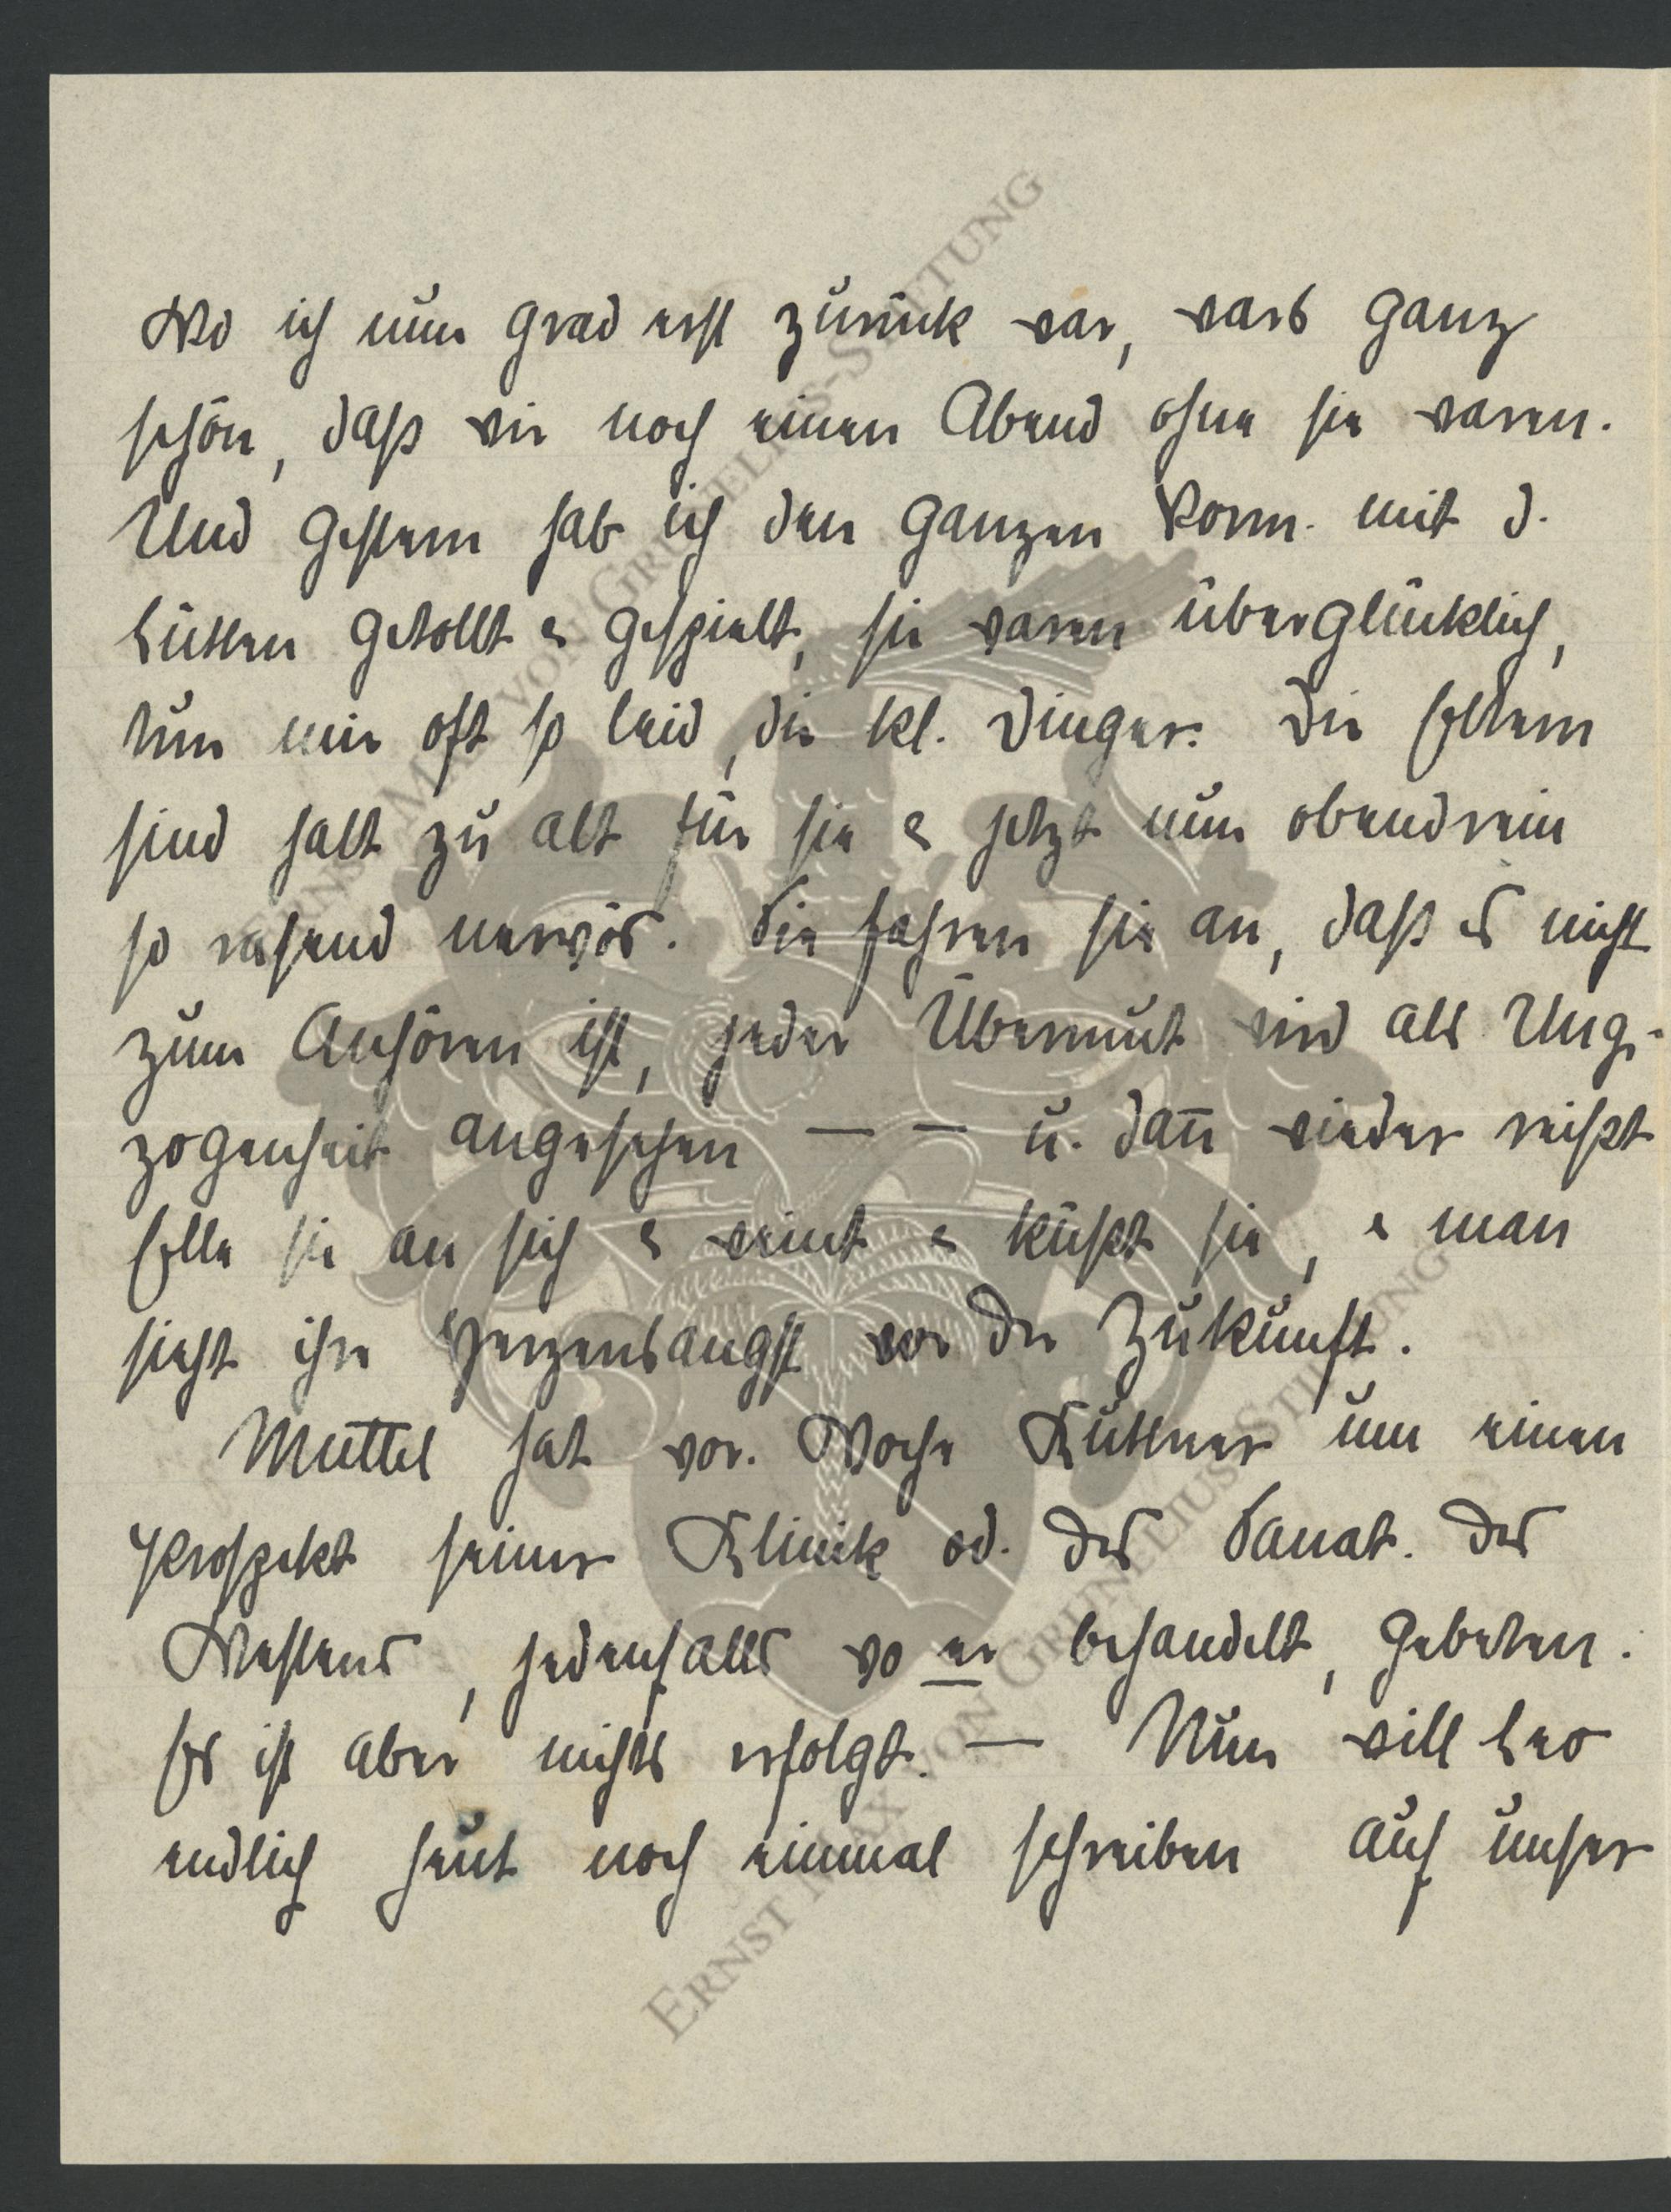 Wo ich nun grad erst zurück war, wars ganz
schön, daß wir noch einen Abend ohne sie waren.
Und gestern hab ich den ganzen Vorm. mit d.
Lütten getollt & gespielt, sie waren überglücklich,
tun mir oft so leid, die kl. Dinger. Die Eltern
sind halt zu alt für sie & jetzt nun obendrein
so rasend nervös. Sie fahren sie an, daß es nicht
zum Anhören ist, jeder Übermut wird als Unge-
zogenheit angesehen — — u. dann wieder reißt
Elle sie an sich & weint & küßt sie, & man
sieht ihre Herzensangst vor der Zukunft.
Muttel hat vor. Woche Küttner um einen
Prospekt seiner Klinik od. des Sanat. des
Westens, jedenfalls wo er behandelt, gebeten.
Es ist aber nichts erfolgt. — Nun will Leo
endlich heut noch einmal schreiben auf unser
ERNST MAX VON GRUNELIUS-STIFTUNG
ERNST MAX VON GRUNELIUS-STIFTUNG